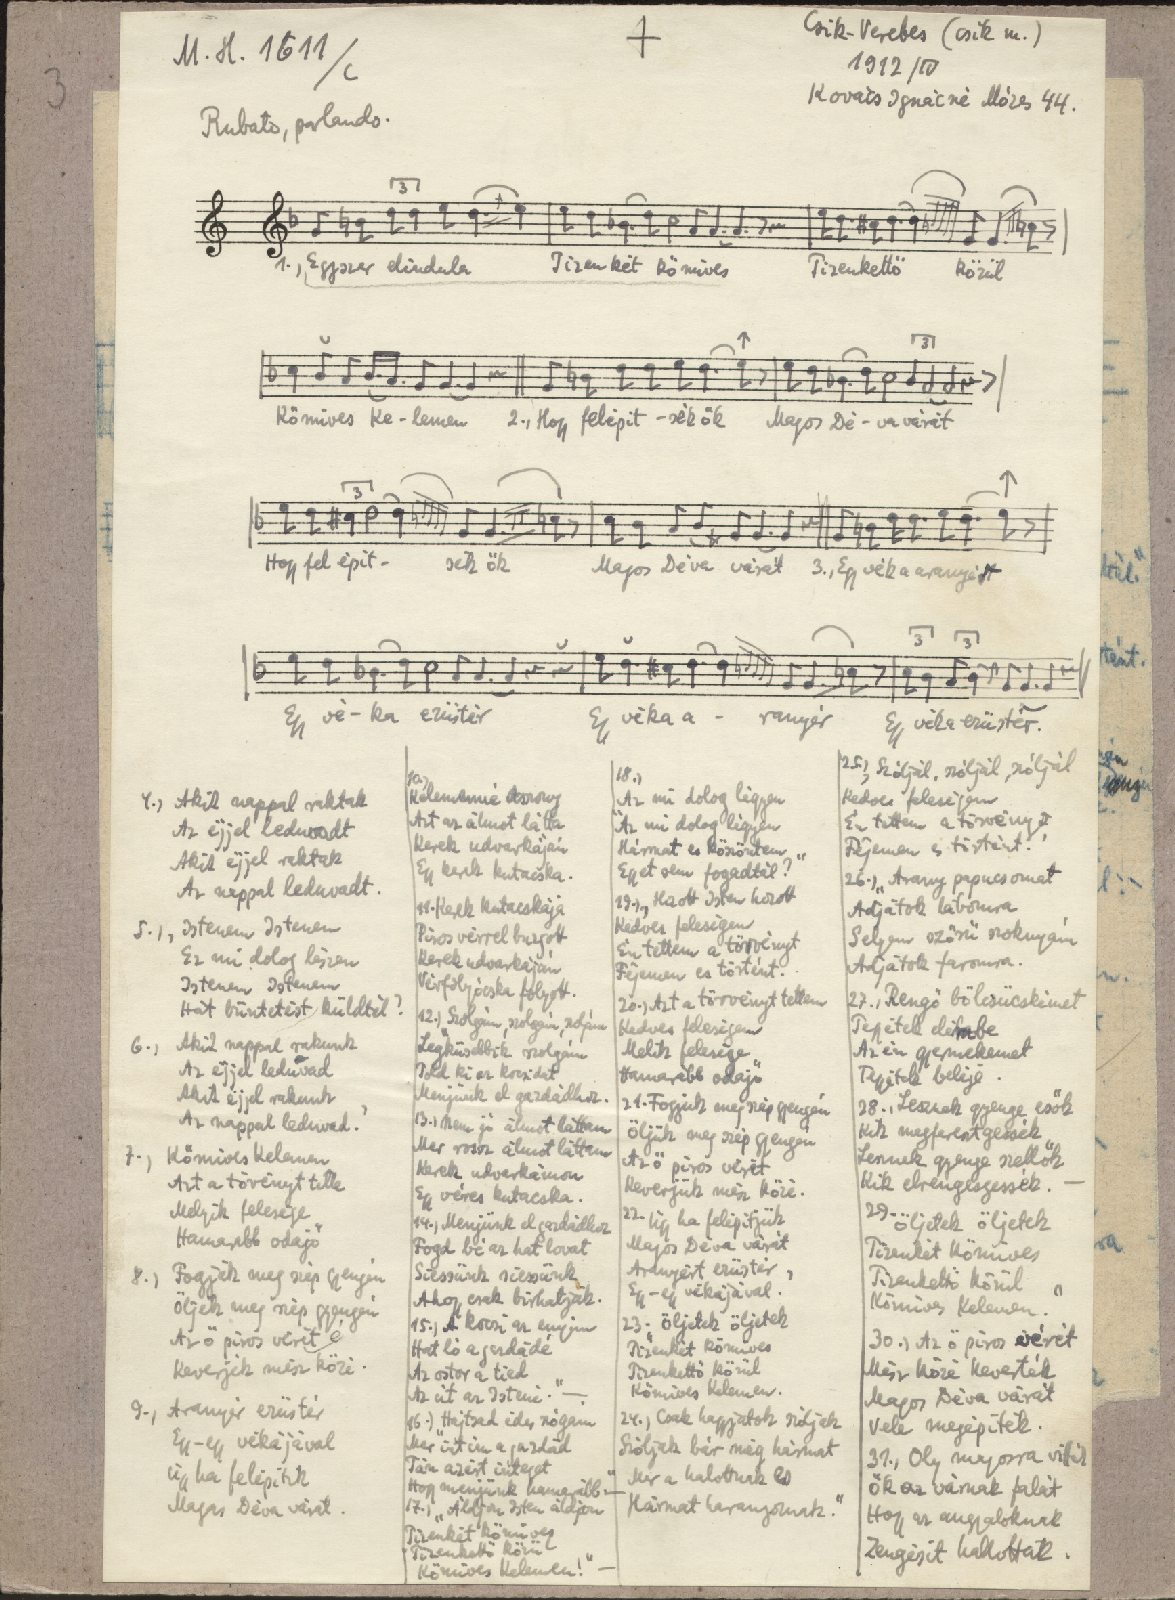 3
M. H. 1611/c
Csik-Verebes (csik m.)
1912/IV
Kovács Ignácné Mózes 44.
Rubato, parlando.
1., Egyszer elindula Tizenkét kőmives Tizenkettő közül
Kőmives Ke-lemen 2., Hogy felépit-sék ők Magos Dé-va várát
Hogy fel épit- sék ők Magos Déva várát 3., Egy véka aranyért
Egy vé-ka ezüstér Egy véka a-ranyér Egy véka ezüstér.
4., Akit nappal raktak
Az éjjel leduvadt
Akit éjjel raktak
Az nappal leduvadt.
5., Istenem Istenem
Ez mi dolog lészen
Istenem Istenem
Hát büntetést küldtél?
6., Akit nappal rakunk
Az éjjel leduvad
Akit éjjel rakunk
Az nappal leduvad?
7., Kőmives Kelemen
Azt a törvényt tette
Melyik felesége
Hamarább odajő
8., Fogják meg szép gyengén
Öljék meg szép gyengén
Az ő piros vérit
Keverjék mész közé.
9., Aranyér ezüstér
Egy-egy vékájával
Úgy ha felépitik
Magas Déva várát.
10.,
Kelemenné asszony
Azt az álmot látta
Kerek udvarkáján
Egy kerek kutacska.
11. Kerek kutacskája
Piros vérrel buzgott
Kerek udvarkáján
Vérfolyócska folyott.
12., Szolgám, szolgám, szolgám
Legküsebbik szolgám
Told ki az kocsidat
Menjünk el gazdádhoz.
13., Nem jó álmot láttam
Mer rossz álmot láttam
Kerek udvarkámon
Egy véres kutacska.
14., Menjünk el gazdádhoz
Fogd bé az hat lovat
Siessünk siessünk
Ahogy csak birhatják.
15., A kocsi az enyém
Hat ló a gazdádé
Az ostor a tied
Az út az Istené." —
16., Hajtsad édes szógám
Mer int ím a gazdád
Tán azért integet
Hogy menjünk hamarább" —
17., „Áldjon Isten áldjon
Tizenkét kőmives
Tizenkettő közül
Kőmives Kelemen!" —
18.,
Az mi dolog légyen
Az mi dolog légyen
Hármat es köszöntem
Egyet sem fogadtál?"
19., „Hozott Isten hozott
Kedves feleségem
Én tettem a törvényt
Fejemen es történt.
20., Azt a törvényt tettem
Kedves feleségem
Melik felesége
Hamarább odajő
21. Fogjuk meg szép gyengén
Öljük meg szép gyengén
Az ő piros vérét
Keverjük mész közé.
22. Úgy ha felépitjük
Magos Déva várát
Aranyért ezüstér,
Egy-egy vékájával.
23. Öljetek öljetek
Tizenkét kőmives
Tizenkettő közül
Kőmives Kelemen.
24., Csak hagyjatok szóljak
Szóljak bár még hármat
Mer a halottnak es
Hármat harangoznak."
25., Szóljál, szóljál, szóljál
Kedves feleségem
Én tettem a törvényt
Fejemen es történt!
26., „Arany papucsomat
Adjátok lábomra
Selyem szőrü szoknyám
Adjátok faromra.
27., Rengő bölcsücskémet
Tegyétek elémbe
Az én gyermekemet
Tegyétek beléje.
28., Lesznek gyenge esők
Kik megferesztgessék
Lesznek gyenge szellők
Kik elrengesgessék. —
29. Öljetek öljetek
Tizenkét kőmives
Tizenkettő közül
Kőmives Kelemen."
30., Az ő piros vérét
Mész közé keverték
Magos Déva várát
Vele megépiték.
31., Oly magosra vitték
Ők az várnak falát
Hogy az angyaloknak
Zengésit hallották.